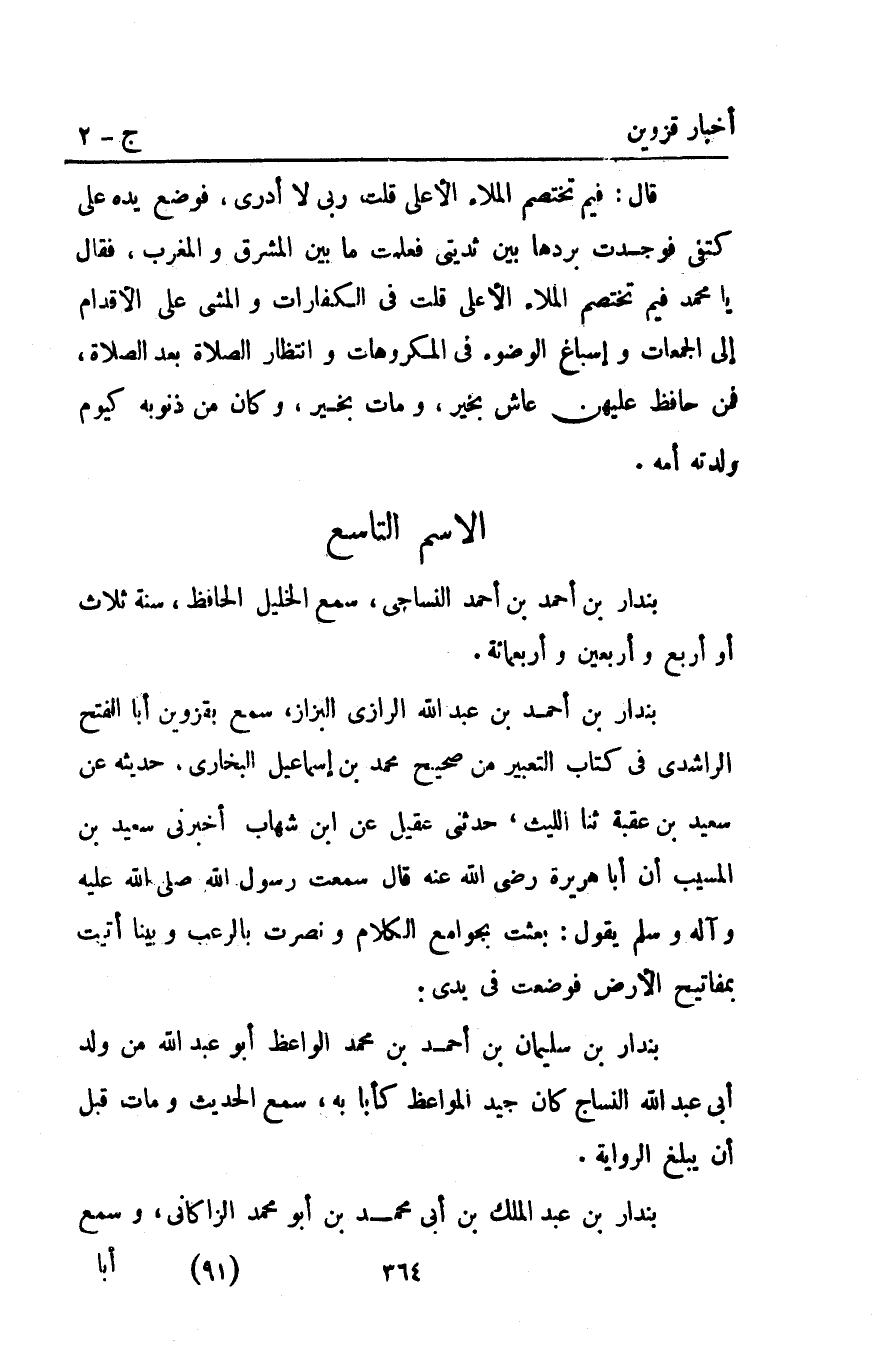 أخبار قزوين ج - ٢
قال : فيم تختصم الملاء الأعلى قلت ربى لا أدرى ، فوضع يده على
كتفى فوجدت بردها بين ثديتى فعلمت ما بين المشرق و المغرب ، فقال
يا محمد فيم تختصم الملاء الأعلى قلت فى الكفارات و المشى على الأقدام
إلى الجمعات و إسباغ الوضوء فى المكروهات و انتظار الصلاة بعد الصلاة ،
فمن حافظ عليهن عاش بخير ، و مات بخير ، و كان من ذنوبه كيوم
ولدته أمه .
الاسم التاسع
بندار بن أحمد بن أحمد النساجى ، سمع الخليل الحافظ ، سنة ثلاث
أو أربع و أربعين و أربعمائة .
بندار بن أحمد بن عبد الله الرازى البزاز، سمع بقزوين أبا الفتح
الراشدى فى كتاب التعبير من صحيح محمد بن إسماعيل البخارى . حديثه عن
سعيد بن عقبة ثنا الليث ، حدثنى عقيل عن ابن شهاب أخبرنى سعيد بن
المسيب أن أبا هريرة رضى الله عنه قال سمعت رسول الله صلى الله عليه
و آله و سلم يقول : بعثت بجوامع الكلام و نصرت بالرعب و بينا أتيت
بمفاتيح الأرض فوضعت فى يدى .
بندار بن سليمان بن أحمد بن محمد الواعظ أبو عبد الله من ولد
أبى عبد الله النساج كان جيد المواعظ كأبا به ، سمع الحديث و مات قبل
أن يبلغ الرواية .
بندار بن عبد الملك بن أبى محمد بن أبو محمد الزاكانى ، و سمع
٣٦٤ (٩١) أبا